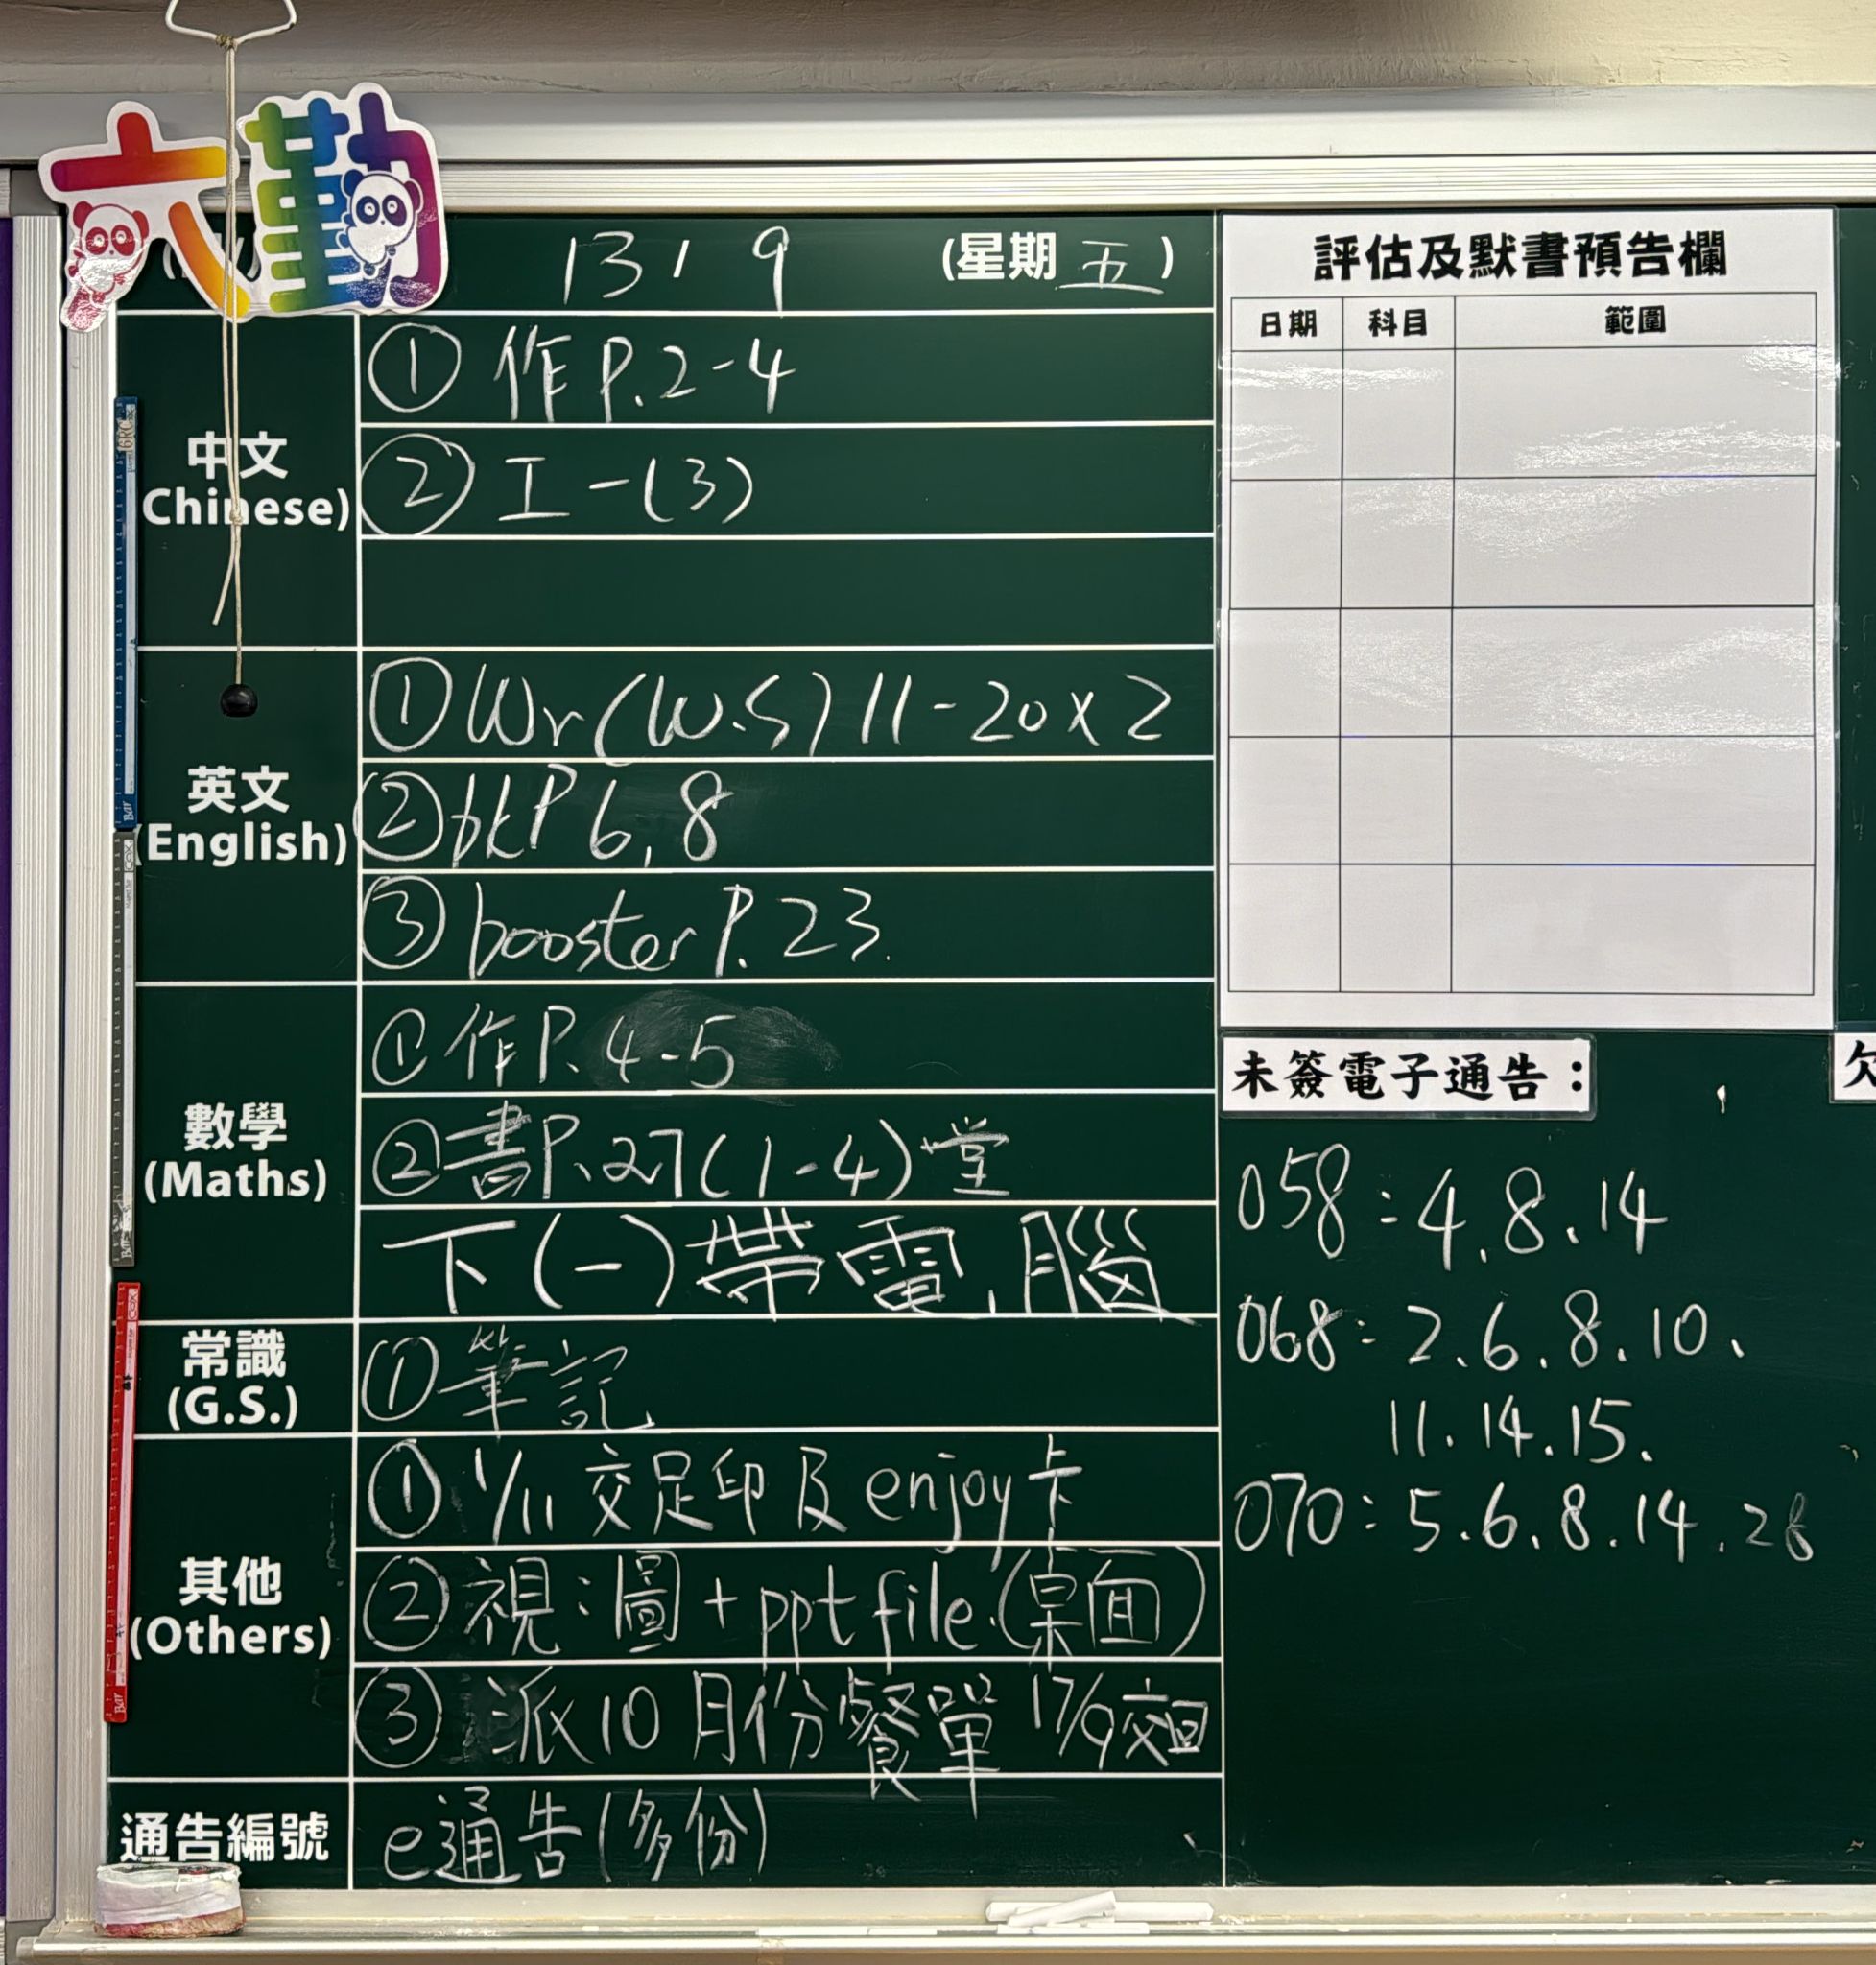 六勤
13 / 9 (星期五)
中文
(Chinese)
① 作 P.2-4
② 工一(3)
英文
(English)
① Wr (W.S) 11-20 x 2
② bk P 6, 8
③ booster P. 23.
數學
(Maths)
① 作 P. 4-5
② 書 P.27 (1-4) 堂
下(一)帶電腦
常識
(G.S.)
① 筆記
其他
(Others)
① 1/11 交足印及 enjoy 卡
② 視:圖 + ppt file.(桌面)
③ 派10月份餐單 17/9交回
通告編號
e通告(多份)
評估及默書預告欄
日期 科目 範圍
未簽電子通告：
058: 4、8、14
068: 2、6、8、10、
11、14、15、
070: 5、6、8、14、28
欠